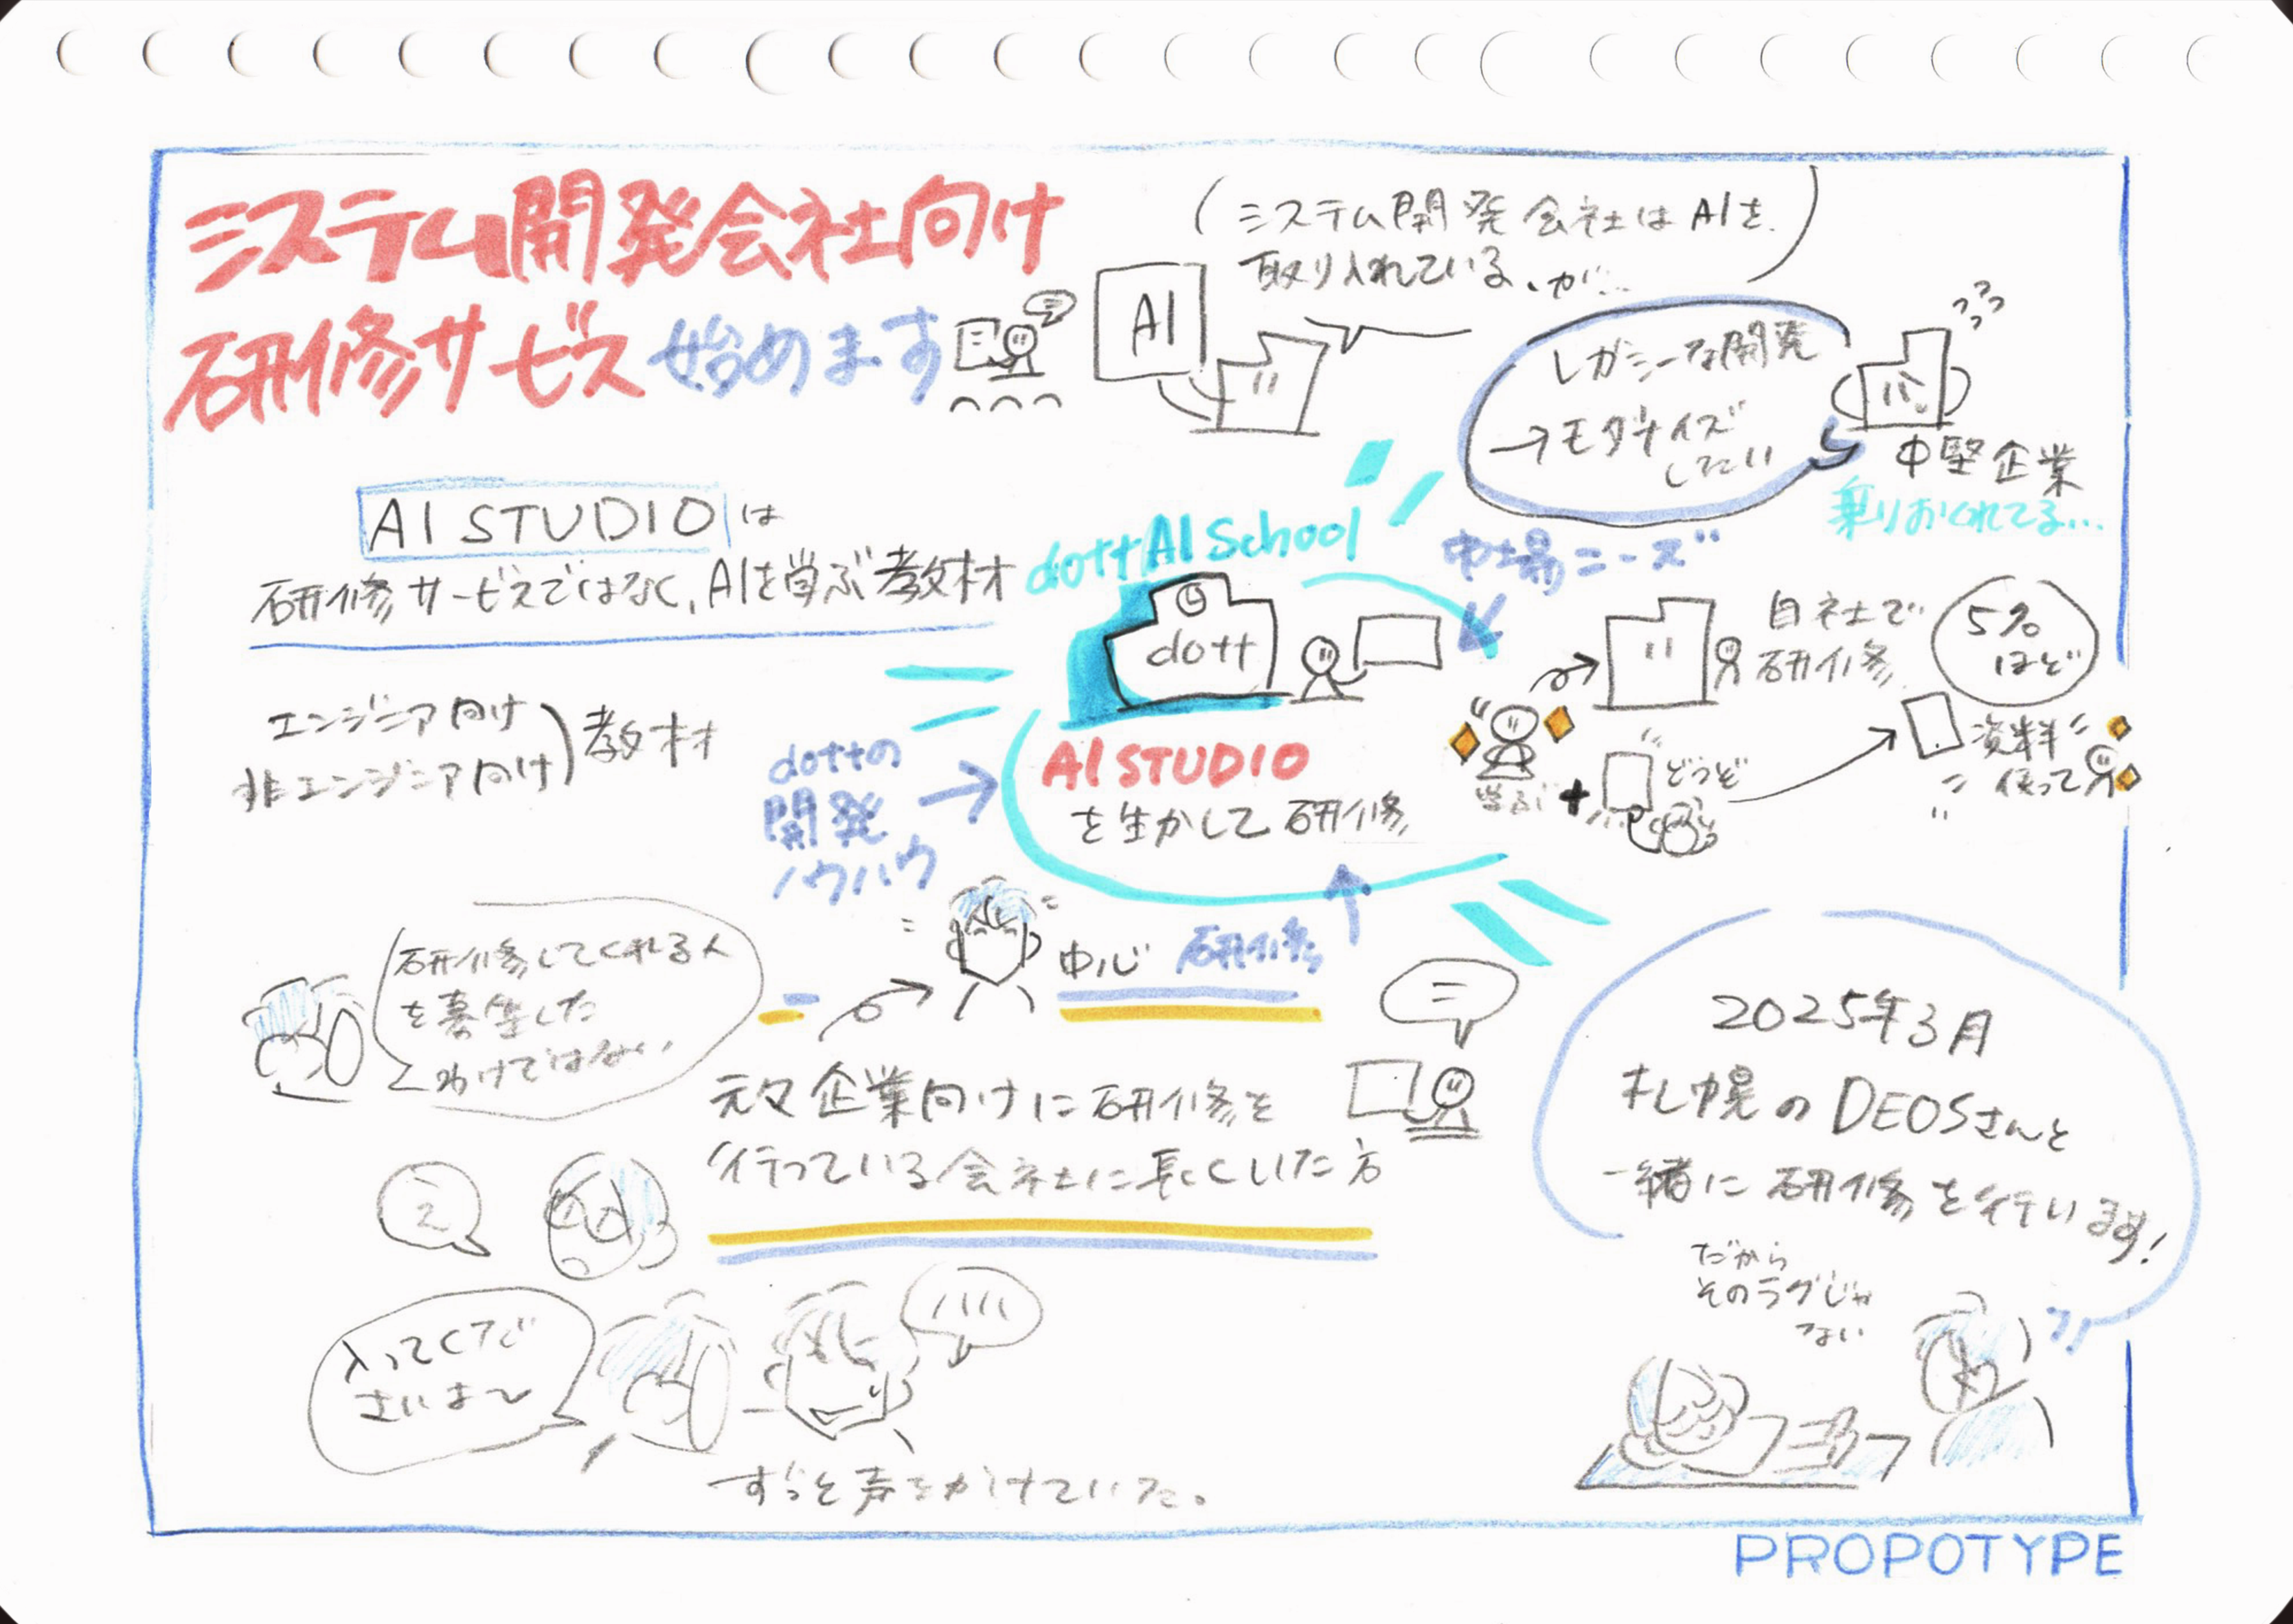 システム開発会社向け
研修サービス始めます
(システム開発会社はAIを
取り入れている、が…
AI
レガシーな開発
→モダナイズ
したい
中堅企業
乗りおくれてる…
AI STUDIO は
研修サービスではなく、AIを学ぶ教材
エンジニア向け
非エンジニア向け
教材
dott AI School
dott
AI STUDIO
を生かして研修
市場ニーズ
dottの
開発
ノウハウ
自社で
研修
5%
ほど
学ぶ
+
どうぞ
資料
使って
研修してくれる人
を募集した
わけではない
中心
研修
元々企業向けに研修を
行っている会社に長くいた方
入ってくだ
さいよ〜
ずっと声をかけていた。
2025年3月
札幌のDEOSさんと
一緒に研修を行います!
だから
そのラグじゃ
ない
PROPOTYPE